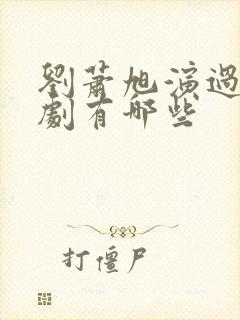 劉蕭旭演過
劇有哪些
打僵尸